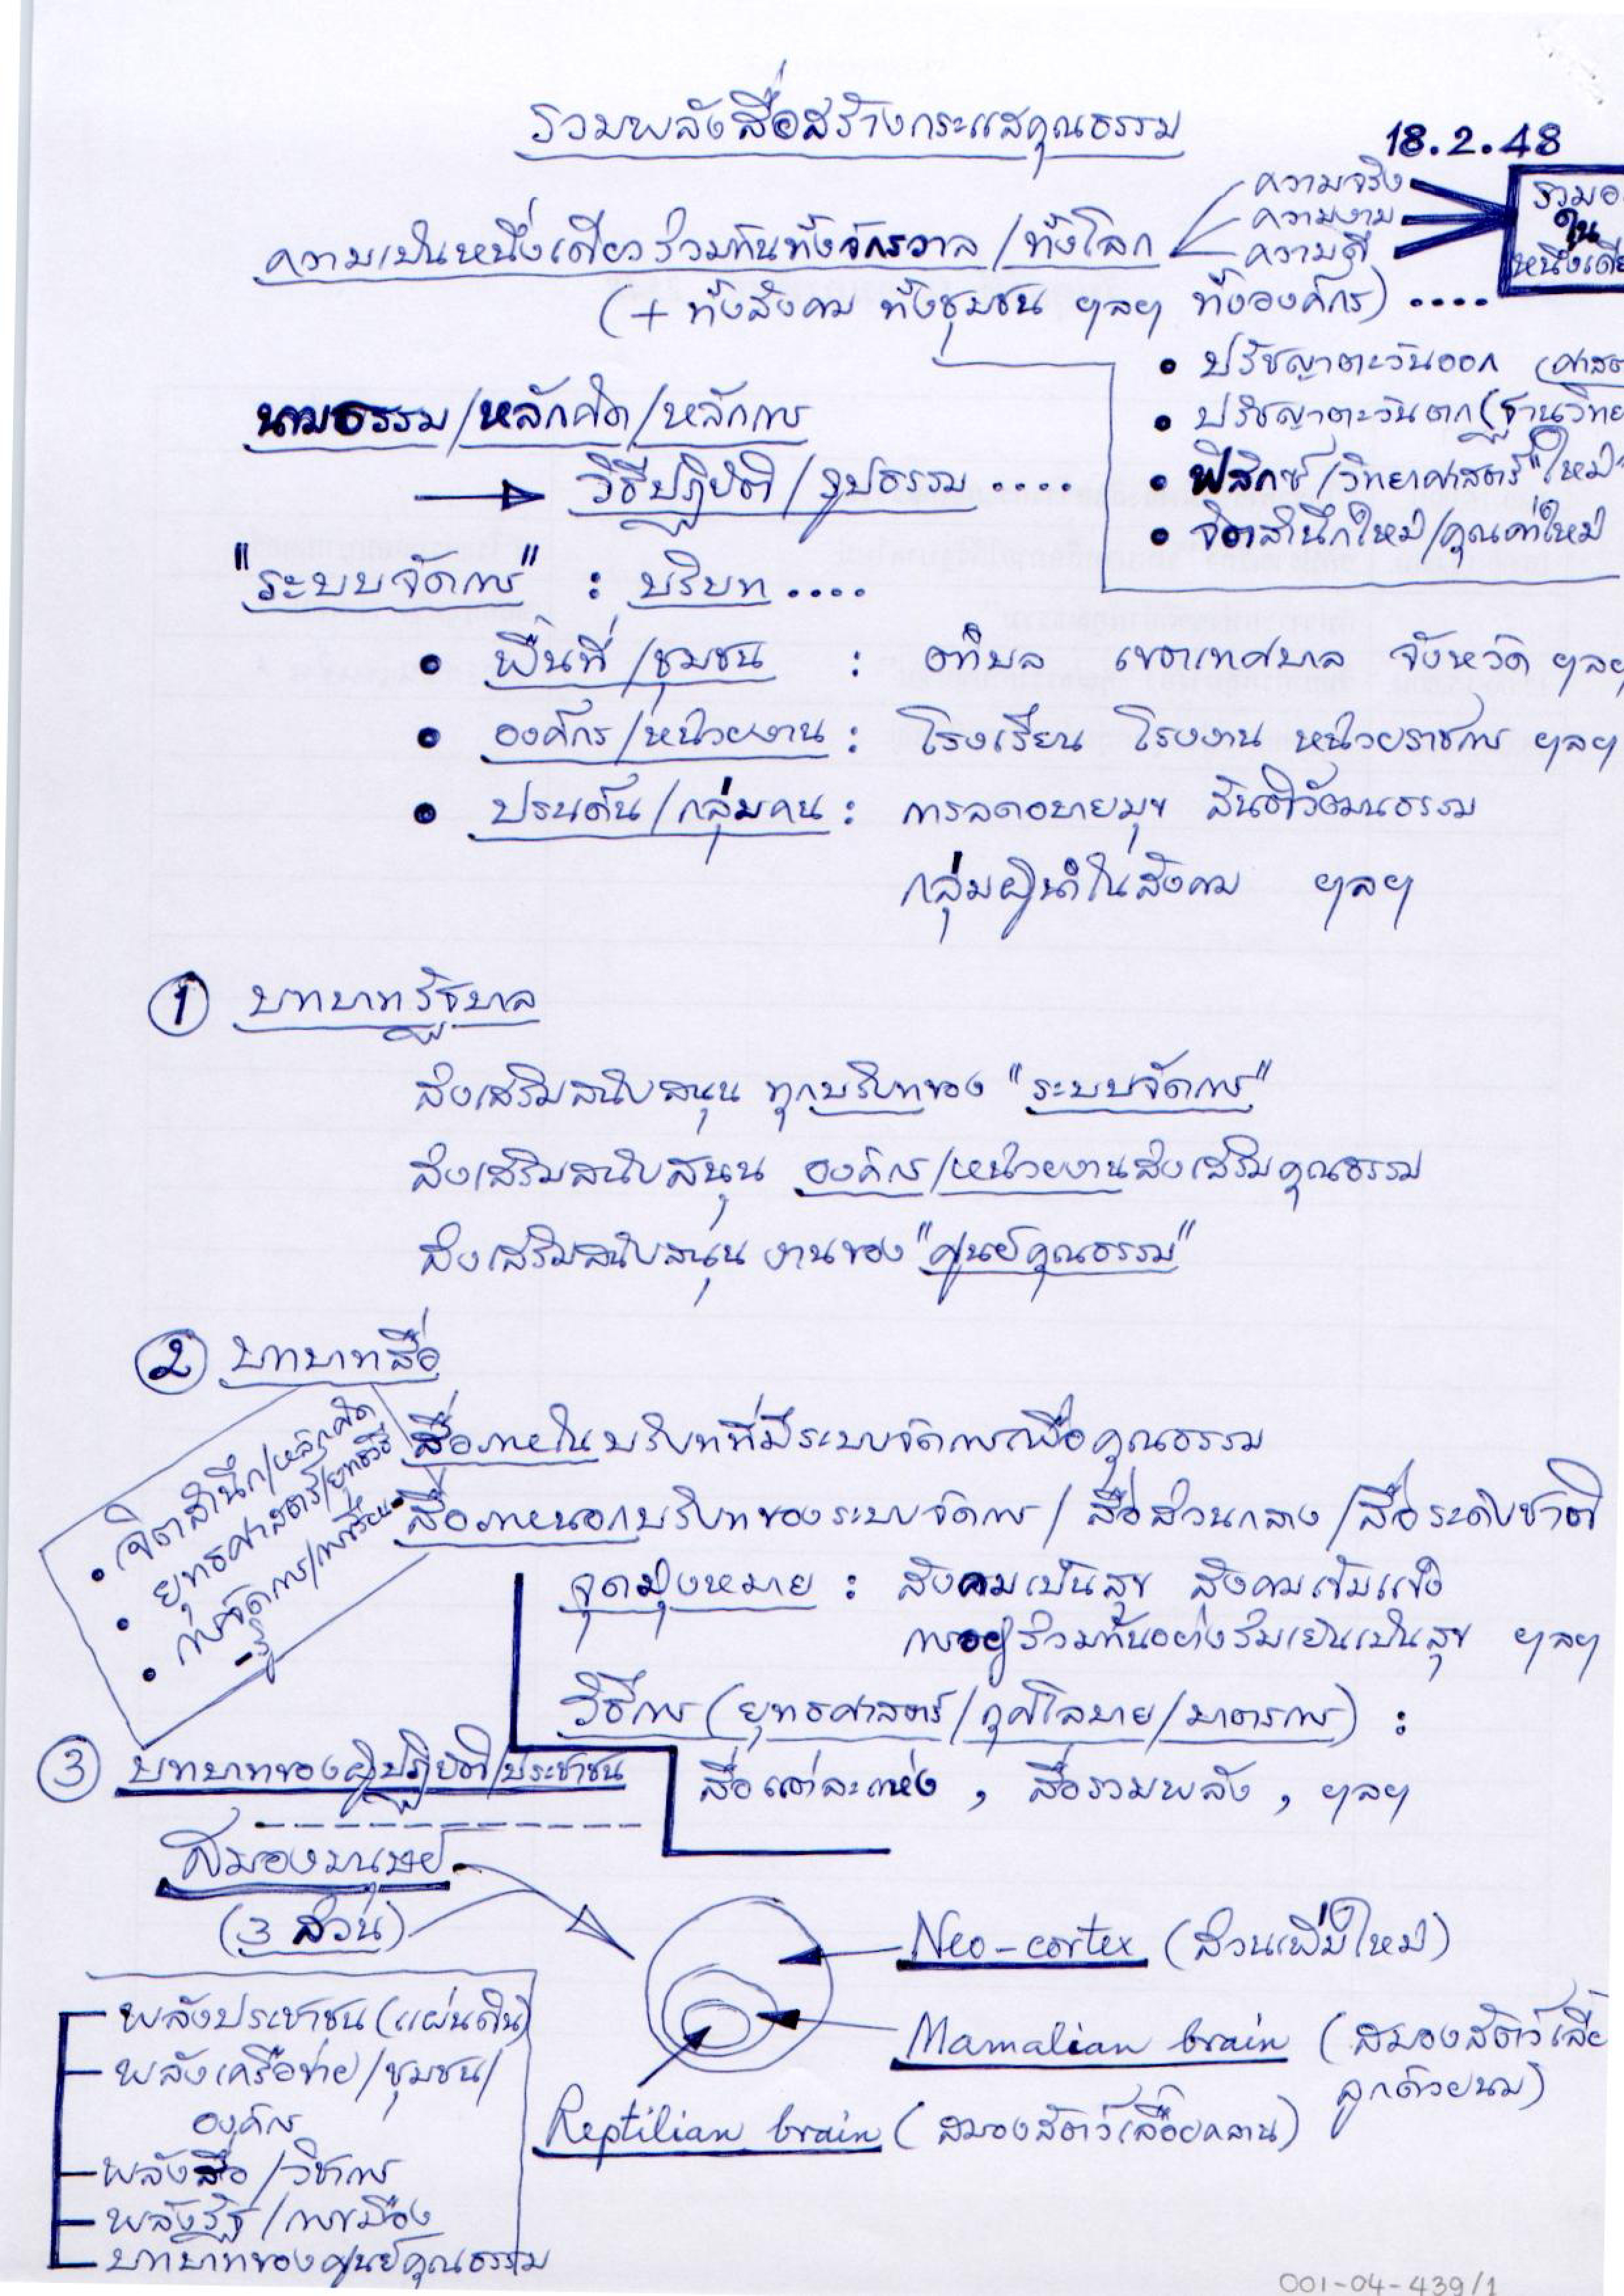 รวมพลังสื่อสร้างกระแสคุณธรรม
18.2.48
ความเป็นหนึ่งเดียวร่วมกันทั้งจักรวาล/ทั้งโลก
ความจริง
ความงาม
ความดี
ใน
(+ ทั้งสังคม ทั้งชุมชน ฯลฯ ทั้งองค์กร) ....
• ปรัชญาตะวันออก
• ปรัชญาตะวันตก
• ฟิสิกซ์/วิทยาศาสตร์ "ใหม่"
• จิตสำนึกใหม่/คุณค่าใหม่
นามธรรม/หลักคิด/หลักการ
วิธีปฏิบัติ/รูปธรรม ....
"ระบบจัดการ" : บริบท ....
• พื้นที่/ชุมชน : ตำบล เขตเทศบาล จังหวัด ฯลฯ
• องค์กร/หน่วยงาน : โรงเรียน โรงงาน หน่วยราชการ ฯลฯ
• ประเด็น/กลุ่มคน : การลดอบายมุข สันติวัฒนธรรม
กลุ่มผู้นำในสังคม ฯลฯ
① บทบาทรัฐบาล
ส่งเสริมสนับสนุน ทุกบริบทของ "ระบบจัดการ"
ส่งเสริมสนับสนุน องค์กร/หน่วยงานส่งเสริมคุณธรรม
ส่งเสริมสนับสนุน งานของ "ศูนย์คุณธรรม"
② บทบาทสื่อ
• จิตสำนึก/หลักคิด
• ยุทธศาสตร์/ยุทธวิธี
• การจัดการ/การเรียน-
-รู้
สื่อภายในบริบทที่มีระบบจัดการเพื่อคุณธรรม
สื่อภายนอกบริบทของระบบจัดการ/สื่อส่วนกลาง/สื่อระดับชาติ
จุดมุ่งหมาย : สังคมเป็นสุข สังคมเข้มแข็ง
การอยู่ร่วมกันอย่างร่มเย็นเป็นสุข ฯลฯ
วิธีการ (ยุทธศาสตร์/กุศโลบาย/มาตรการ) :
สื่อแต่ละแห่ง , สื่อรวมพลัง , ฯลฯ
③ บทบาทของผู้ปฏิบัติ/ประชาชน
สมองมนุษย์
(3 ส่วน)
Neo-cortex (ส่วนเพิ่มใหม่)
Mamalian brain (สมองสัตว์เลี้ย
ลูกด้วยนม)
Reptilian brain (สมองสัตว์เลื้อยคลาน)
พลังประชาชน (แผ่นดิน)
พลังเครือข่าย/ชุมชน/
องค์กร
พลังสื่อ/วิชาการ
พลังรัฐ/การเมือง
บทบาทของศูนย์คุณธรรม
001-04-439/1